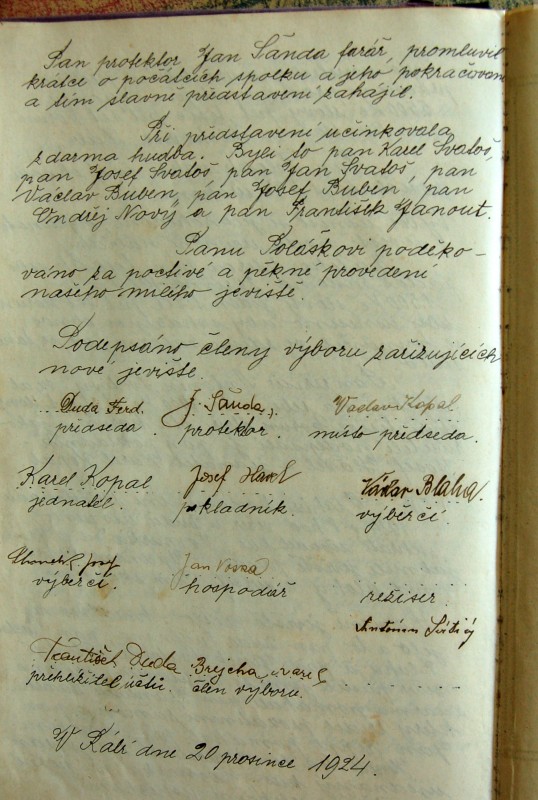 Pan protektor Jan Šanda farář, promluvil
krátce o počátcích spolku a jeho pokračování
a tím slavné představení zahájil.
Při představení účinkovala
zdarma hudba. Byli to pan Karel Svatoš,
pan Josef Svatoš, pan Jan Svatoš, pan
Václav Buben, pan Josef Buben, pan
Ondřej Nový a pan František Janout.
Panu Poláškovi poděko-
váno za poctivé a pěkné provedení
našeho milého jeviště.
Podepsáno členy výboru zařizujících
nové jeviště.
Duda Ferd. J. Šanda Vaclav Kopal
předseda. protektor. místo předseda.
Karel Kopal Josef Václav Bláha.
jednatel. pokladník. výběrčí.
Josef Jan
výběrčí. hospodář režiser
Antonín
František Duda Brejcha Karel
přehlížitel účtů. člen výboru.
V dne 20 prosince 1924.